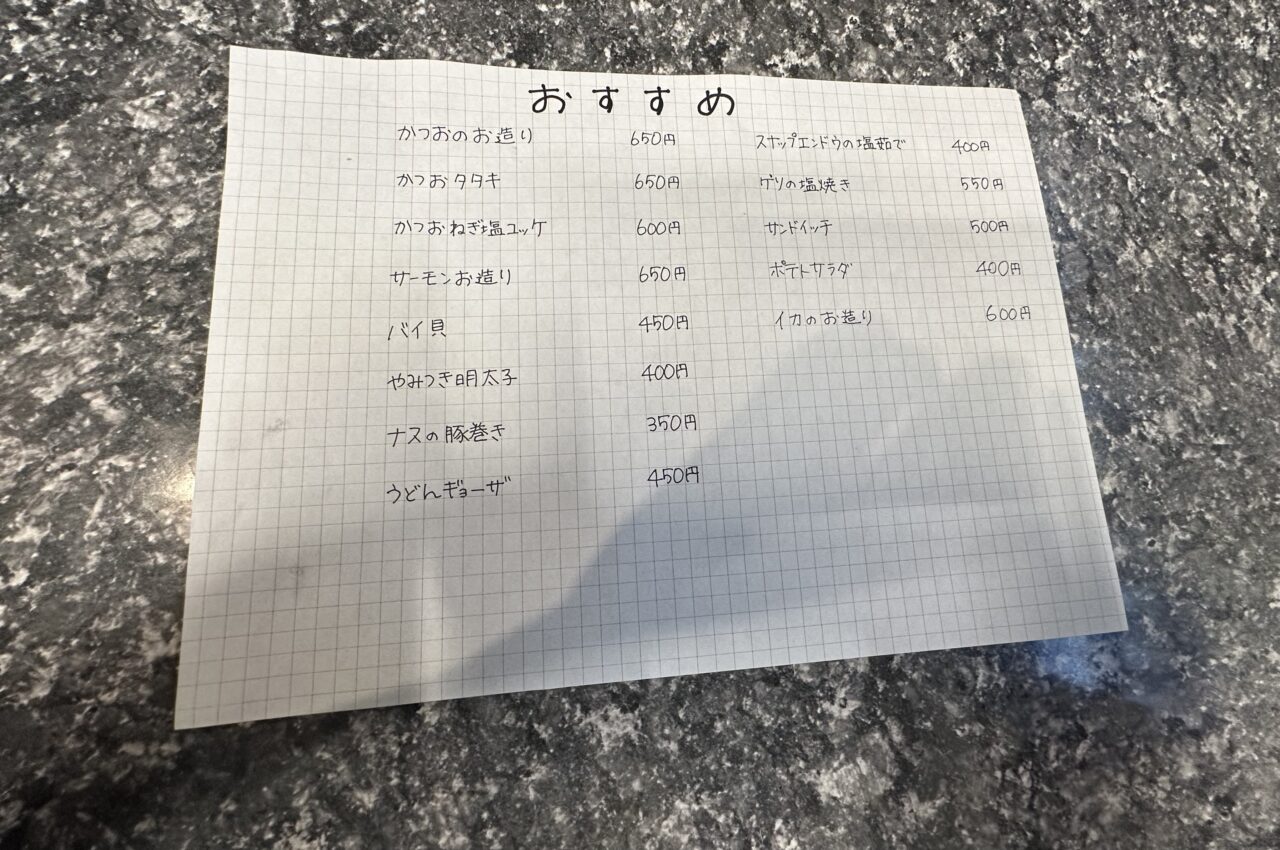 おすすめ
かつおのお造り 650円
かつおタタキ 650円
かつおねぎ塩ユッケ 600円
サーモンお造り 650円
バイ貝 450円
やみつき明太子 400円
ナスの豚巻き 350円
うどんギョーザ 450円
スナップエンドウの塩茹で 400円
ゲソの塩焼き 550円
サンドイッチ 500円
ポテトサラダ 400円
イカのお造り 600円